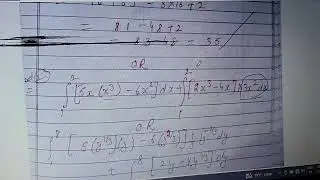 = 81-48+2
= 83-48 = 35
OR
= ∫₀² [5x(x³) - 6x²] dx + ∫₀² [2x³-4x] 3x² dx
OR
∫₀⁸ [5(y^{1/3})(y) - 6(y^{2/3})] ⅓ y^{-2/3} dy
+ ∫₀⁸ [2y-4y^{1/3}] dy